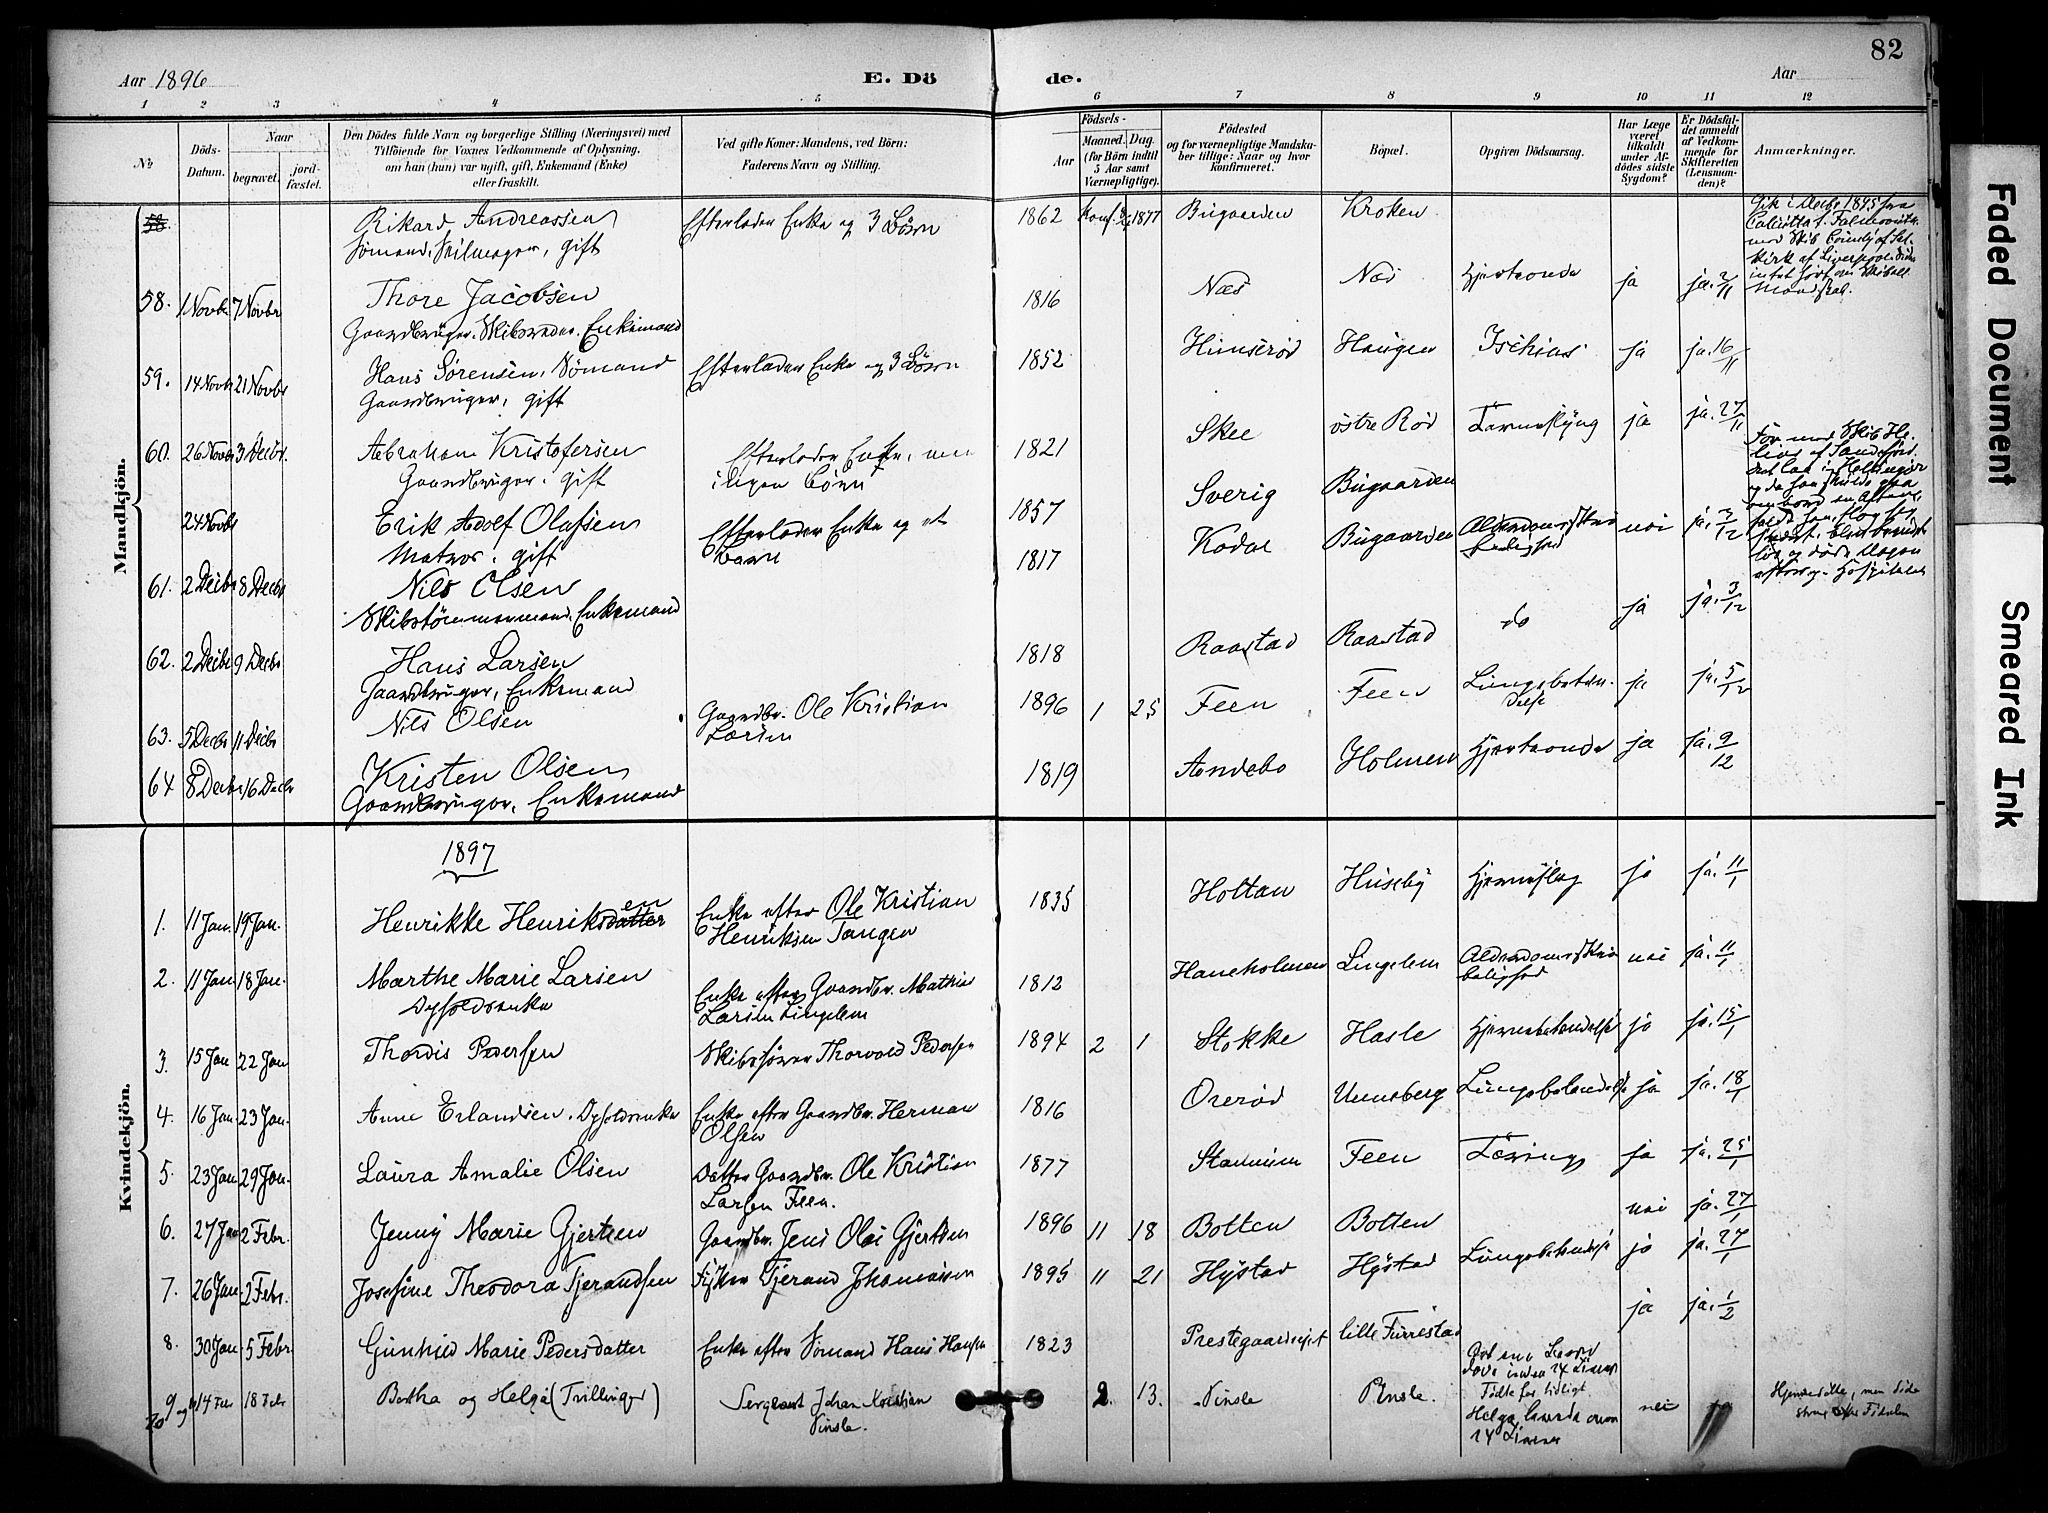 82
Aar 1896
E. Dö
de.
Aar
1 2 3 4 5 6 7 8 9 10 11 12
No
Döds-
Datum.
Naar
begravet.
jord-
fæstet.
Den Dödes fulde Navn og borgerlige Stilling (Næringsvei) med
Tilföiende for Voxnes Vedkommende af Oplysning,
om han (hun) var ugift, gift, Enkemand (Enke)
eller fraskilt.
Ved gifte Koner: Mandens, ved Börn:
Faderens Navn og Stilling.
Födsels-
Aar
Maaned. Dag.
(for Börn indtil
5 Aar samt
Værnepligtige).
Födested
og for værnepligtige Mandska-
ber tillige: Naar og hvor
konfirmeret.
Böpæl.
Opgiven Dödsaarsag.
Har Læge
været
tilkaldt
under Af-
dödes sidste
Sygdom?
Er Dödsfal-
det anmeldt
af Vedkom-
mende for
Skifteretten
(Lensman-
den)?
Anmærkninger.
Mandkjön.
58. Rikard Andreassen Efterlader Enke og 3 Börn 1862 Konf. 1877 Bugaarden Kroken
Sømand, Seilmager, gift
Gik i Decbr 1895 fra
Calcutta t. Falmouth
med Skib
kirk af Liverpool. Siden
intet hørt om Skib ell.
Mandskab.
58. 1 Novbr 7 Novbr Thore Jacobsen 1816 Næs Næs Hjerteonde ja ja. 2/11
Gaardbruger, Skibsreder, Enkemand
59. 14 Novbr 21 Novbr Hans Sørensen, Sømand Efterlader Enke og 3 Börn 1852 Hunserød Haugen Ischias ja ja. 16/11
Gaardbruger, gift
60. 26 Novbr 3 Decbr. Abraham Kristofersen Efterlader Enke, men 1821 Skee østre Rød ja ja. 27/11
Gaardbruger, gift ingen Börn
24 Novbr Erik Adolf Olafsen Efterlader Enke og et 1857 Sverig Bugaarden
Matros, gift Barn
For med Skib He-
lios af Sandefjord,
det laa i Helsingør
og da han skulde gaa
ombord en Aften,
faldt han, slog sig
61. 2 Decbr 8 Decbr Nils Olsen 1817 Kodal Bugaarden Alderdomssvage- nei ja. 3/12
Skibstømmermand, Enkemand
62. 2 Decbr 9 Decbr Hans Larsen 1818 Raastad Raastad do ja ja. 3/12
Gaardbruger, Enkemand
63. 5 Decbr 11 Decbr Nils Olsen Gaardbr. Ole Kristian 1896 1 25 Feen Feen Lungebetæn- ja ja. 5/12
Larsen delse
64 8 Decbr 16 Decbr Kristen Olsen 1819 Andebo Holmen Hjerteonde ja ja. 9/12
Gaardbruger, Enkemand
Kvindekjön.
1897
1. 11 Jan. 19 Jan. Henrikke Henriksdatter Enke efter Ole Kristian 1835 Holtan Huseby Hjerneslag ja ja. 11/1
sen
Henriksen Tangen
2. 11 Jan. 18 Jan. Marthe Marie Larsen Enke efter Gaardbr. Mathis 1812 Haneholmen Lingelem nei ja. 11/1
Larsen Lingelem
3. 15 Jan 22 Jan Thordis Pedersen Skibsfører Thorvald Pedersen 1894 2 1 Stokke Hasle Hjernebetændelse ja ja. 15/1
4. 16 Jan. 23 Jan. Anne Erlandsen. Enke efter Gaardbr. Herman 1816 Orerød Unneberg Lungebetændelse ja ja. 18/1
Olsen
5. 23 Jan 29 Jan. Laura Amalie Olsen Datter Gaardbr. Ole Kristian 1877 Stammen Feen Tæring ja ja. 25/1
Larsen Feen.
6. 27 Jan 2 Febr. Jenny Marie Gjertsen Gaardbr. Jens Olai Gjertsen 1896 11 18 Botten Botten nei ja. 27/1
7. 26 Jan. 2 Febr. Josefine Theodora Tjerandsen Fisker Tjerand Johannessen 1895 11 21 Hystad Hystad Lungebetændelse ja ja. 27/1
8. 30 Jan. 5 Febr. Gunhild Marie Pedersdatter Enke efter Sømand Hans Hansen 1823 Prestegaardseiet lille Furrestad ja ja. 1/2
9 og 10 14 Febr 18 Febr Bertha og Helga (Tvillinger) Sergeant Johan Kristian 2. 13. Vinsle Vinsle. nei
Vinsle.
Det ene
døde inden 24 Timer
Født for tidligt
Helga levede over
24 Timer
Hjemmedøbte, men døde
strax efter Fødselen
Faded Document
Smeared Ink